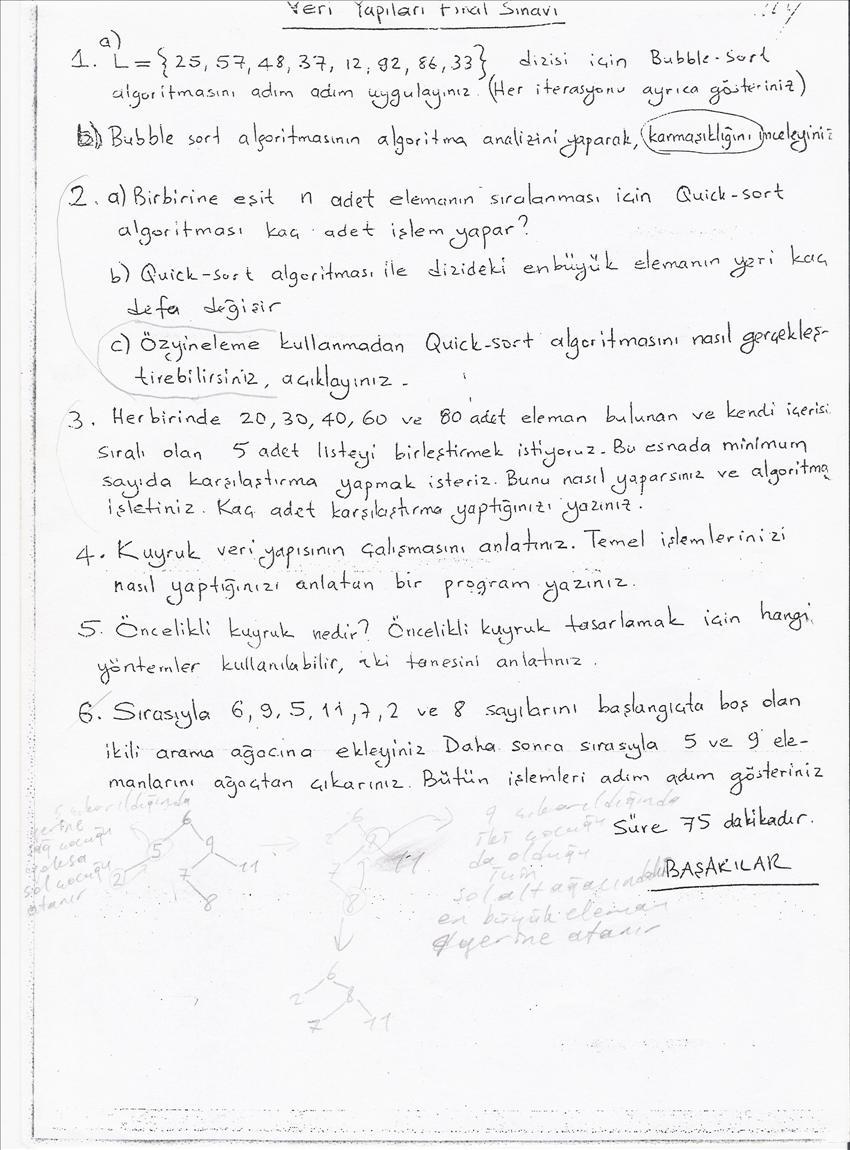 Veri Yapıları Final Sınavı
a)
1. L = {25, 57, 48, 37, 12, 92, 86, 33} dizisi için Bubble-sort
algoritmasını adım adım uygulayınız. (Her iterasyonu ayrıca gösteriniz)
b) Bubble sort algoritmasının algoritma analizini yaparak, karmaşıklığını inceleyiniz
2. a) Birbirine eşit n adet elemanın sıralanması için Quick-sort
algoritması kaç adet işlem yapar?
b) Quick-sort algoritması ile dizideki en büyük elemanın yeri kaç
defa değişir
c) Özyineleme kullanmadan Quick-sort algoritmasını nasıl gerçekleş-
tirebilirsiniz, açıklayınız.
3. Her birinde 20, 30, 40, 60 ve 80 adet eleman bulunan ve kendi içerisi
sıralı olan 5 adet listeyi birleştirmek istiyoruz. Bu esnada minimum
sayıda karşılaştırma yapmak isteriz. Bunu nasıl yaparsınız ve algoritma
işletiniz. Kaç adet karşılaştırma yaptığınızı yazınız.
4. Kuyruk veri yapısının çalışmasını anlatınız. Temel işlemlerinizi
nasıl yaptığınızı anlatan bir program yazınız.
5. Öncelikli kuyruk nedir? Öncelikli kuyruk tasarlamak için hangi
yöntemler kullanılabilir, iki tanesini anlatınız.
6. Sırasıyla 6, 9, 5, 11, 7, 2 ve 8 sayılarını başlangıçta boş olan
ikili arama ağacına ekleyiniz Daha sonra sırasıyla 5 ve 9 ele-
manlarını ağaçtan çıkarınız. Bütün işlemleri adım adım gösteriniz
Süre 75 dakikadır.
BAŞARILAR
5 çıkarıldığında
yerine
sağ çocuğu
yoksa
sol çocuğu
atanır
6
5 9
2 7 11
8
6
2 9
7 11
8
9 çıkarıldığında
iki çocuğu
da olduğu
için
sol alt ağacındaki
en büyük eleman
yerine atanır
6
2 8
7 11